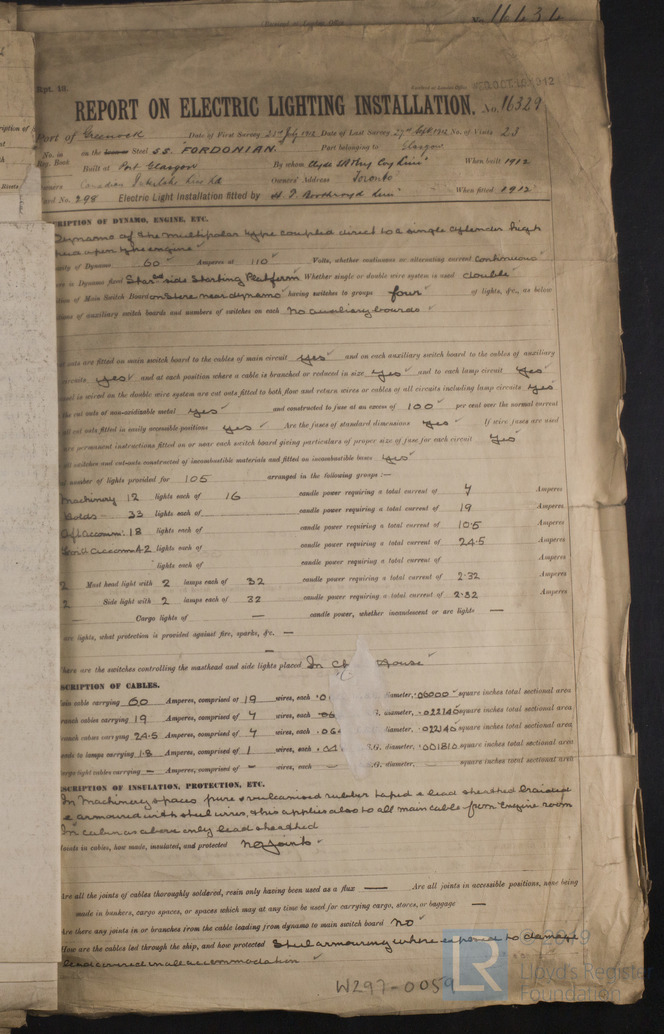 No. 16434
Rpt. 13.
REC'D OCT. 10 1912
REPORT ON ELECTRIC LIGHTING INSTALLATION. No. 16329
Port of Greenock Date of First Survey 22nd July 1912 Date of Last Survey 27th Sept 1912 No. of Visits 23
No. in on the Steel S.S. "FORDONIAN" Port belonging to Glasgow
Reg. Book Built at Port Glasgow By whom Clyde When built 1912
Owners Canadian Owners' Address Toronto
Card No. 298 Electric Light Installation fitted by When fitted 1912
DESCRIPTION OF DYNAMO, ENGINE, ETC.
Dynamo of the multipolar type coupled direct to a single cylinder high
open type engine
Dynamo 60 Amperes at 110 Volts, whether continuous or alternating current Continuous
is Dynamo fixed Starbd side Starting Platform Whether single or double wire system is used double
of Main Switch Board on Store near dynamo having switches to groups four of lights, &c., as below
of auxiliary switch boards and numbers of switches on each No auxiliary boards
cut outs are fitted on main switch board to the cables of main circuit yes and on each auxiliary switch board to the cables of auxiliary
circuits yes and at each position where a cable is branched or reduced in size yes and to each lamp circuit yes
vessel is wired on the double wire system are cut outs fitted to both flow and return wires or cables of all circuits including lamp circuits yes
the cut outs of non-oxidizable metal yes and constructed to fuse at an excess of 100 per cent over the normal current
all cut outs fitted in easily accessible positions yes Are the fuses of standard dimensions yes If wire fuses are used
are permanent instructions fitted on or near each switch board giving particulars of proper size of fuse for each circuit yes
all switches and cut-outs constructed of incombustible materials and fitted on incombustible bases yes
number of lights provided for 105 arranged in the following groups :—
Machinery 12 lights each of 16 candle power requiring a total current of 7 Amperes
Holds 33 lights each of candle power requiring a total current of 19 Amperes
Aft Accomm. 18 lights each of candle power requiring a total current of 10.5 Amperes
Accom 42 lights each of candle power requiring a total current of 24.5 Amperes
lights each of candle power requiring a total current of Amperes
2 Mast head light with 2 lamps each of 32 candle power requiring a total current of 2.32 Amperes
2 Side light with 2 lamps each of 32 candle power requiring a total current of 2.32 Amperes
— Cargo lights of — candle power, whether incandescent or arc lights —
arc lights, what protection is provided against fire, sparks, &c. —
—
Where are the switches controlling the masthead and side lights placed In House
DESCRIPTION OF CABLES.
Main cable carrying 60 Amperes, comprised of 19 wires, each diameter, square inches total sectional area
Branch cables carrying 19 Amperes, comprised of 7 wires, each S.G. diameter, .022140 square inches total sectional area
Branch cables carrying 24.5 Amperes, comprised of 7 wires, each .064 S.G. diameter, .022140 square inches total sectional area
Leads to lamps carrying 1.8 Amperes, comprised of 1 wires, each S.G. diameter, .001810 square inches total sectional area
Cargo light cables carrying — Amperes, comprised of — wires, each — S.G. diameter, square inches total sectional area
DESCRIPTION OF INSULATION, PROTECTION, ETC.
In Machinery spaces pure & vulcanised rubber taped & lead sheathed braided
& armoured with steel wires, this applies also to all main cable from Engine room
In cabins as above only lead sheathed
Joints in cables, how made, insulated, and protected no joints
Are all the joints of cables thoroughly soldered, resin only having been used as a flux — Are all joints in accessible positions, none being
made in bunkers, cargo spaces, or spaces which may at any time be used for carrying cargo, stores, or baggage —
Are there any joints in or branches from the cable leading from dynamo to main switch board No
How are the cables led through the ship, and how protected Steel armouring where exposed to damage
lead covered in all accommodation
W297-0059
LR Lloyd's Register
Foundation